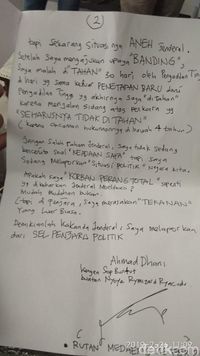 2
tapi, Sekarang Situasinya ANEH Jenderal.
Setelah Saya mengajukan upaya "BANDING",
Saya malah di TAHAN" 30 hari oleh Pengadilan Tinggi
di hari yg sama keluar PENETAPAN BARU dari
Pengadilan Tinggi yg akhirnya Saya "di tahan"
karena menjalani sidang atas perkara yg
"SEHARUSNYA TIDAK DITAHAN"
(karena ancaman hukumannya di bawah 4 tahun).
Jangan Salah Paham Jenderal, Saya tidak Sedang
menceritakan Soal "KEADAAN SAYA" tapi saya
Sedang Melaporkan "Situasi politik" Negara kita.
Apakah Saya "KORBAN PERANG TOTAL" seperti
yg di kabarkan Jenderal Moeldoko?
Mudah Mudahan bukan.
(tapi di penjara, Saya merasakan "TEKANAN"
Yang Luar Biasa.
Demikianlah Kakanda Jenderal, Saya melaporkan
dari SEL PENJARA POLITIK
Ahmad Dhani
RUTAN MEDAENG
detikcom